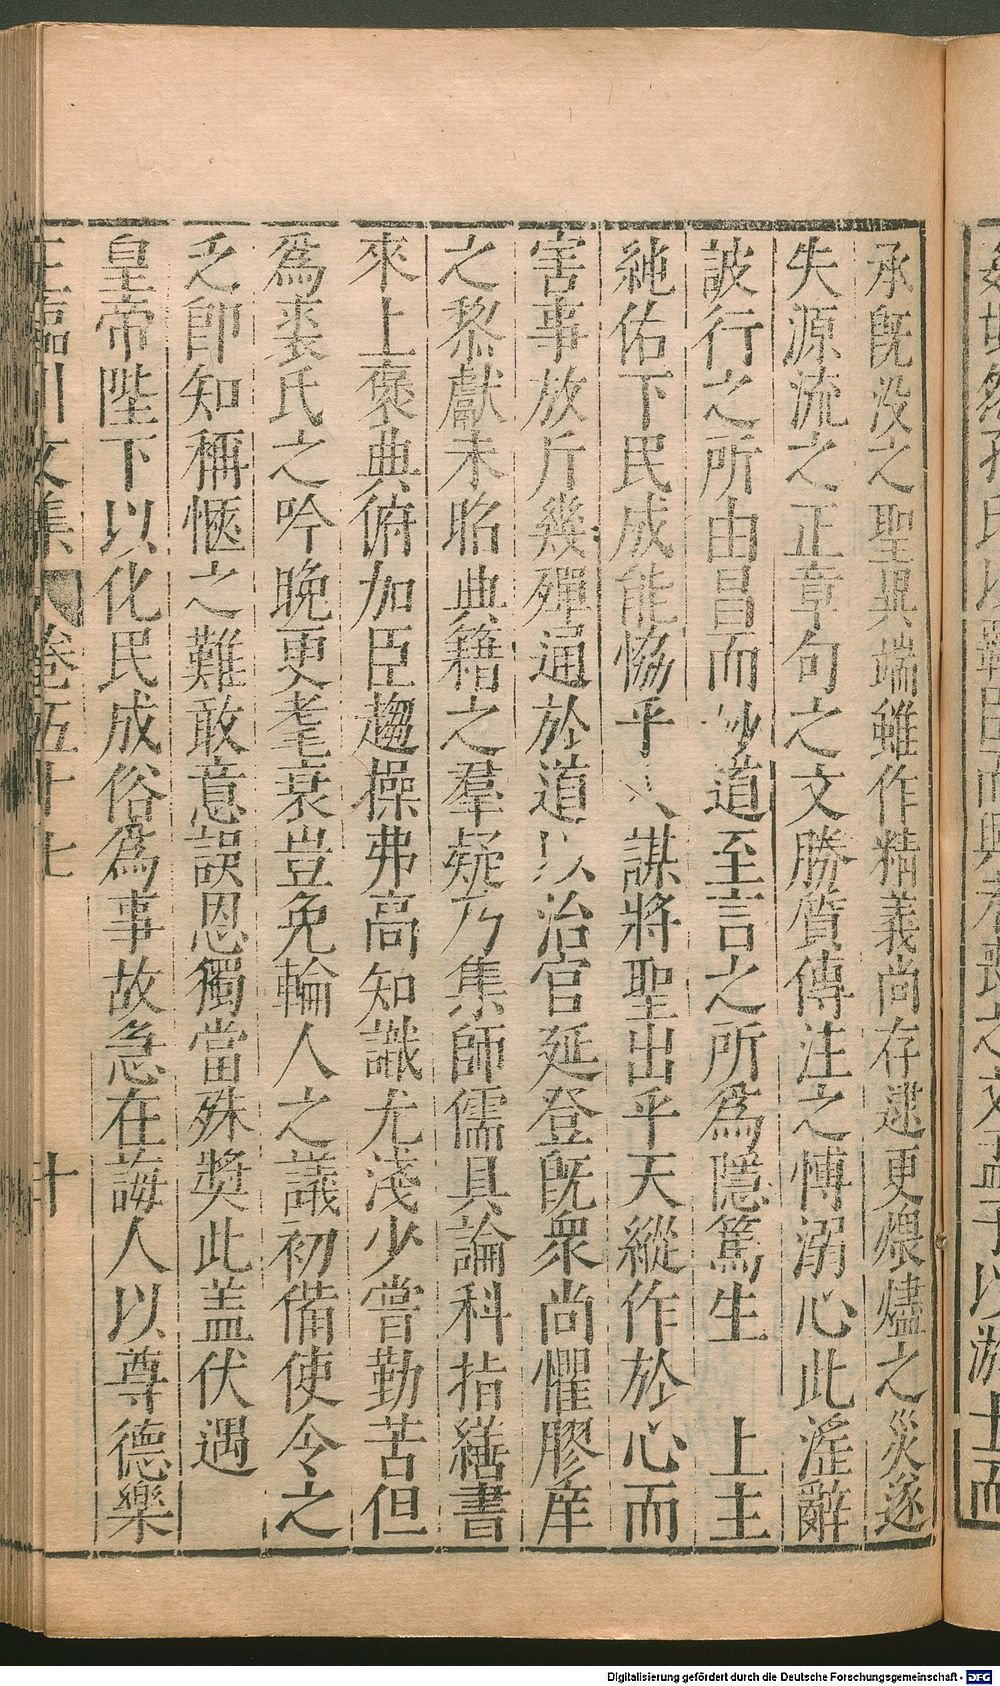 承旣没之聖異端雖作精義尚存逮更煨燼之災遂
失源流之正章句之文勝質傳注之愽溺心此淫辭
詖行之所由昌而妙道至言之所爲隱篤生　上主
純佑下民成能恊乎人謀將聖出乎天縱作於心而
害事放斥幾殫通於道以治官延登旣衆尚懼膠庠
之黎獻未昭典籍之羣疑乃集師儒具論科指繕書
來上褒典俯加臣趨操弗高知識尤淺少嘗勤苦但
爲裘氏之吟晚更耄衰豈免輪人之議初備使令之
乏卽知稱愜之難敢意誤恩獨當殊奬此盖伏遇
皇帝陛下以化民成俗爲事故急在誨人以尊德樂
王臨川文集 卷五十七 十
而
士
以游
Digitalisierung gefördert durch die Deutsche Forschungsgemeinschaft - DFG